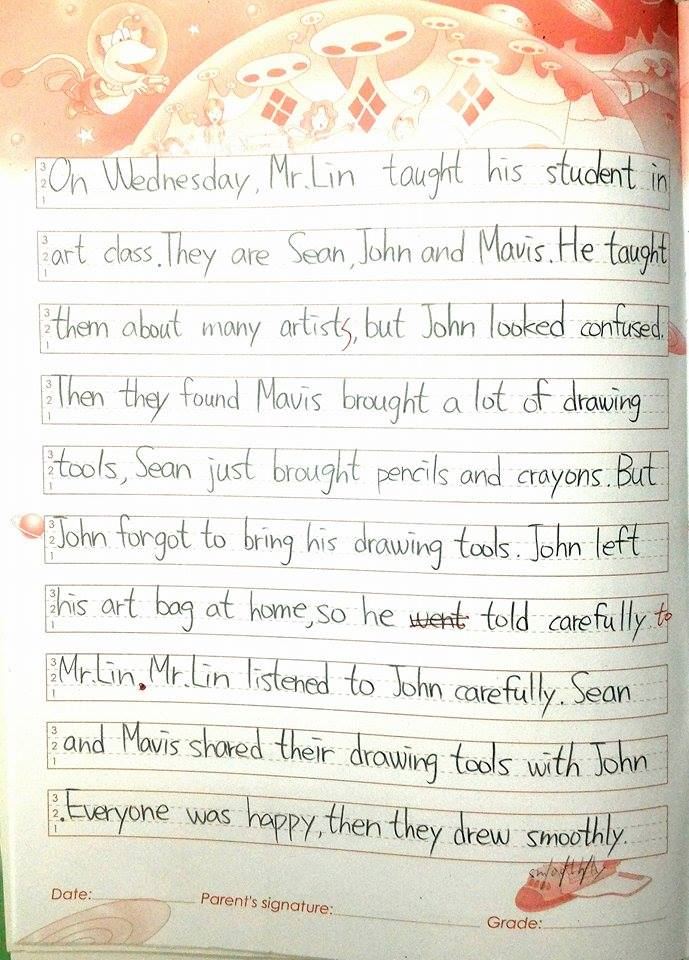 On Wednesday, Mr.Lin taught his student in
art class. They are Sean, John and Mavis. He taught
them about many artists, but John looked confused.
Then they found Mavis brought a lot of drawing
tools, Sean just brought pencils and crayons. But
John forgot to bring his drawing tools. John left
his art bag at home, so he went told carefully to
Mr.Lin. Mr.Lin listened to John carefully. Sean
and Mavis shared their drawing tools with John
. Everyone was happy, then they drew smoothly.
Date:
Parent's signature:
Grade: